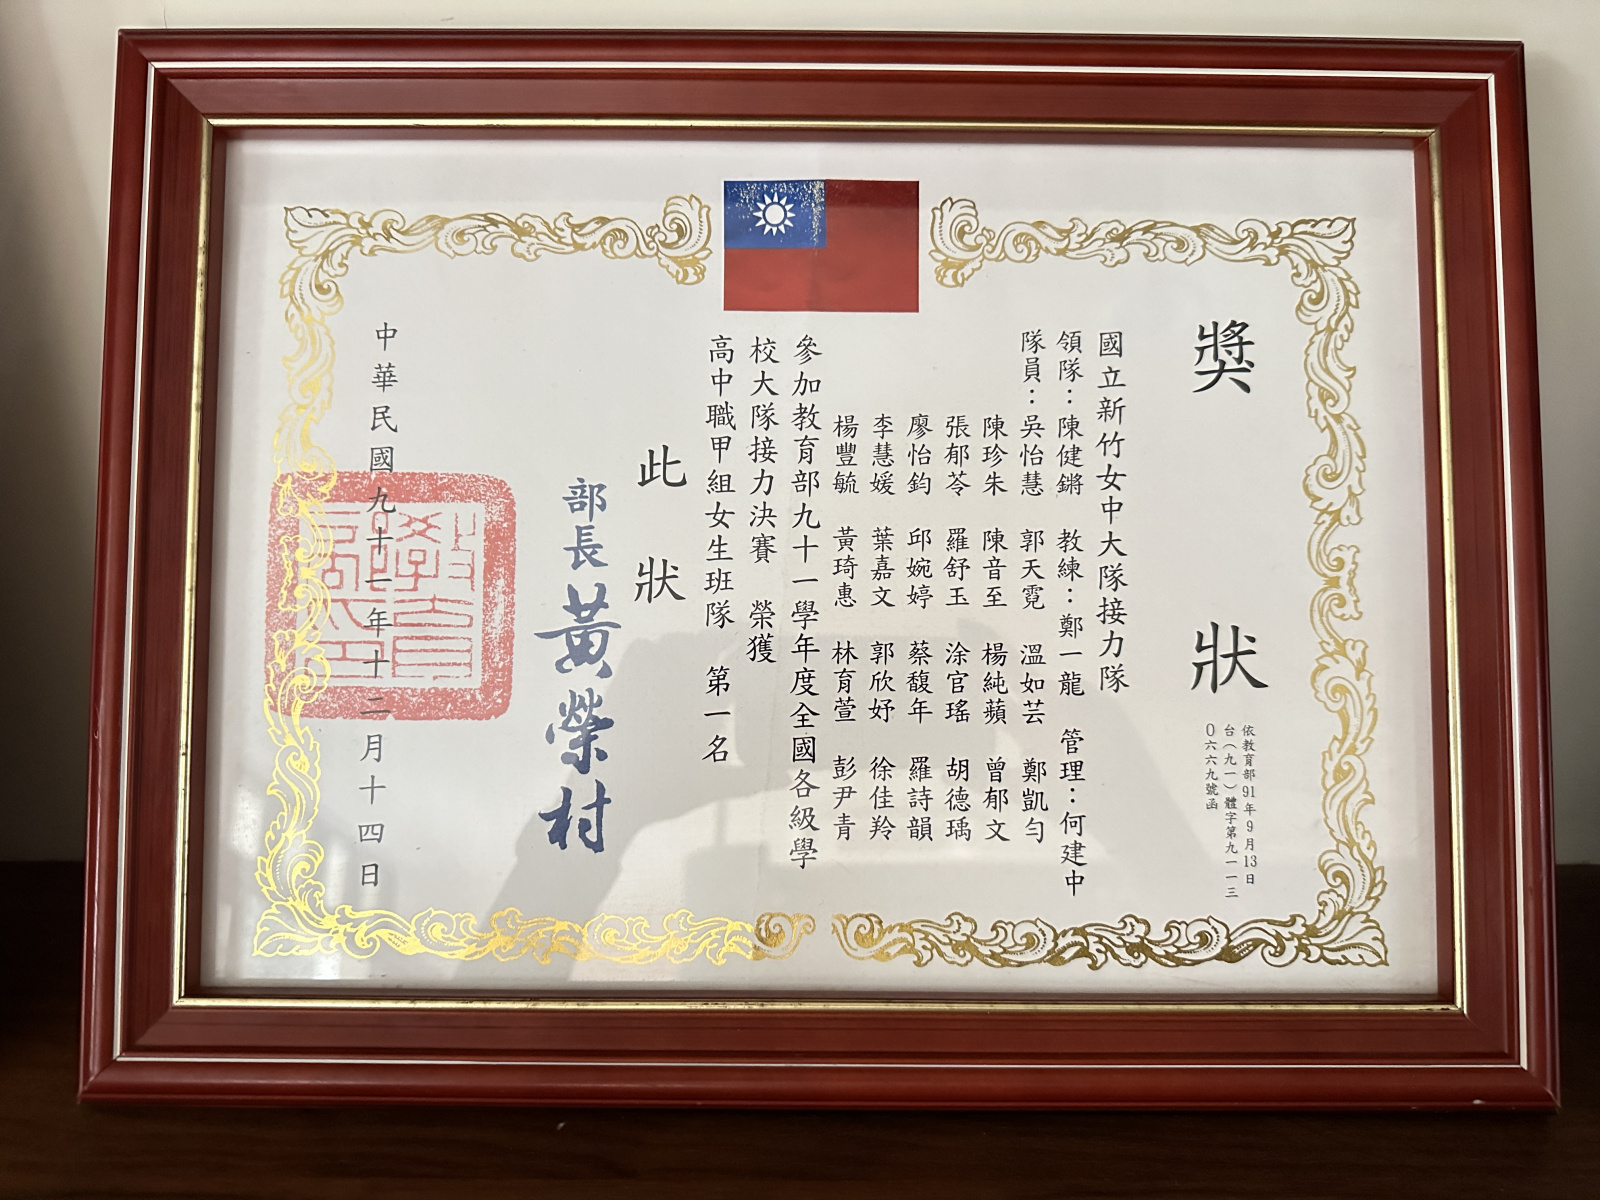 獎狀
依教育部91年9月13日
台(九一)體字第九一一三
0六六九號函
國立新竹女中大隊接力隊
領隊:陳健鏘 教練:鄭一龍 管理:何建中
隊員:吳怡慧 郭天霓 溫如芸 鄭凱勻
陳珍朱 陳音至 楊純蘋 曾郁文
張郁苓 羅舒玉 涂官瑤 胡德瑀
廖怡鈞 邱婉婷 蔡馥年 羅詩韻
李慧媛 葉嘉文 郭欣妤 徐佳羚
楊豐毓 黃琦惠 林育萱 彭尹青
參加教育部九十一學年度全國各級學
校大隊接力決賽 榮獲
高中職甲組女生班隊 第一名
此狀
部長 黃榮村
中華民國九十一年十二月十四日